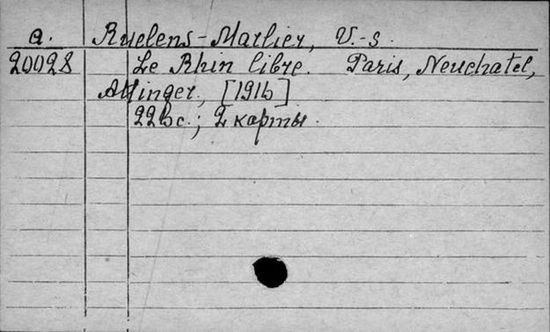 a. Ruelens-Marlier, V.-s.
20028 Le Rhin libre. Paris, Neuchatel,
Attinger, [1916]
226 c.; 2 карты.